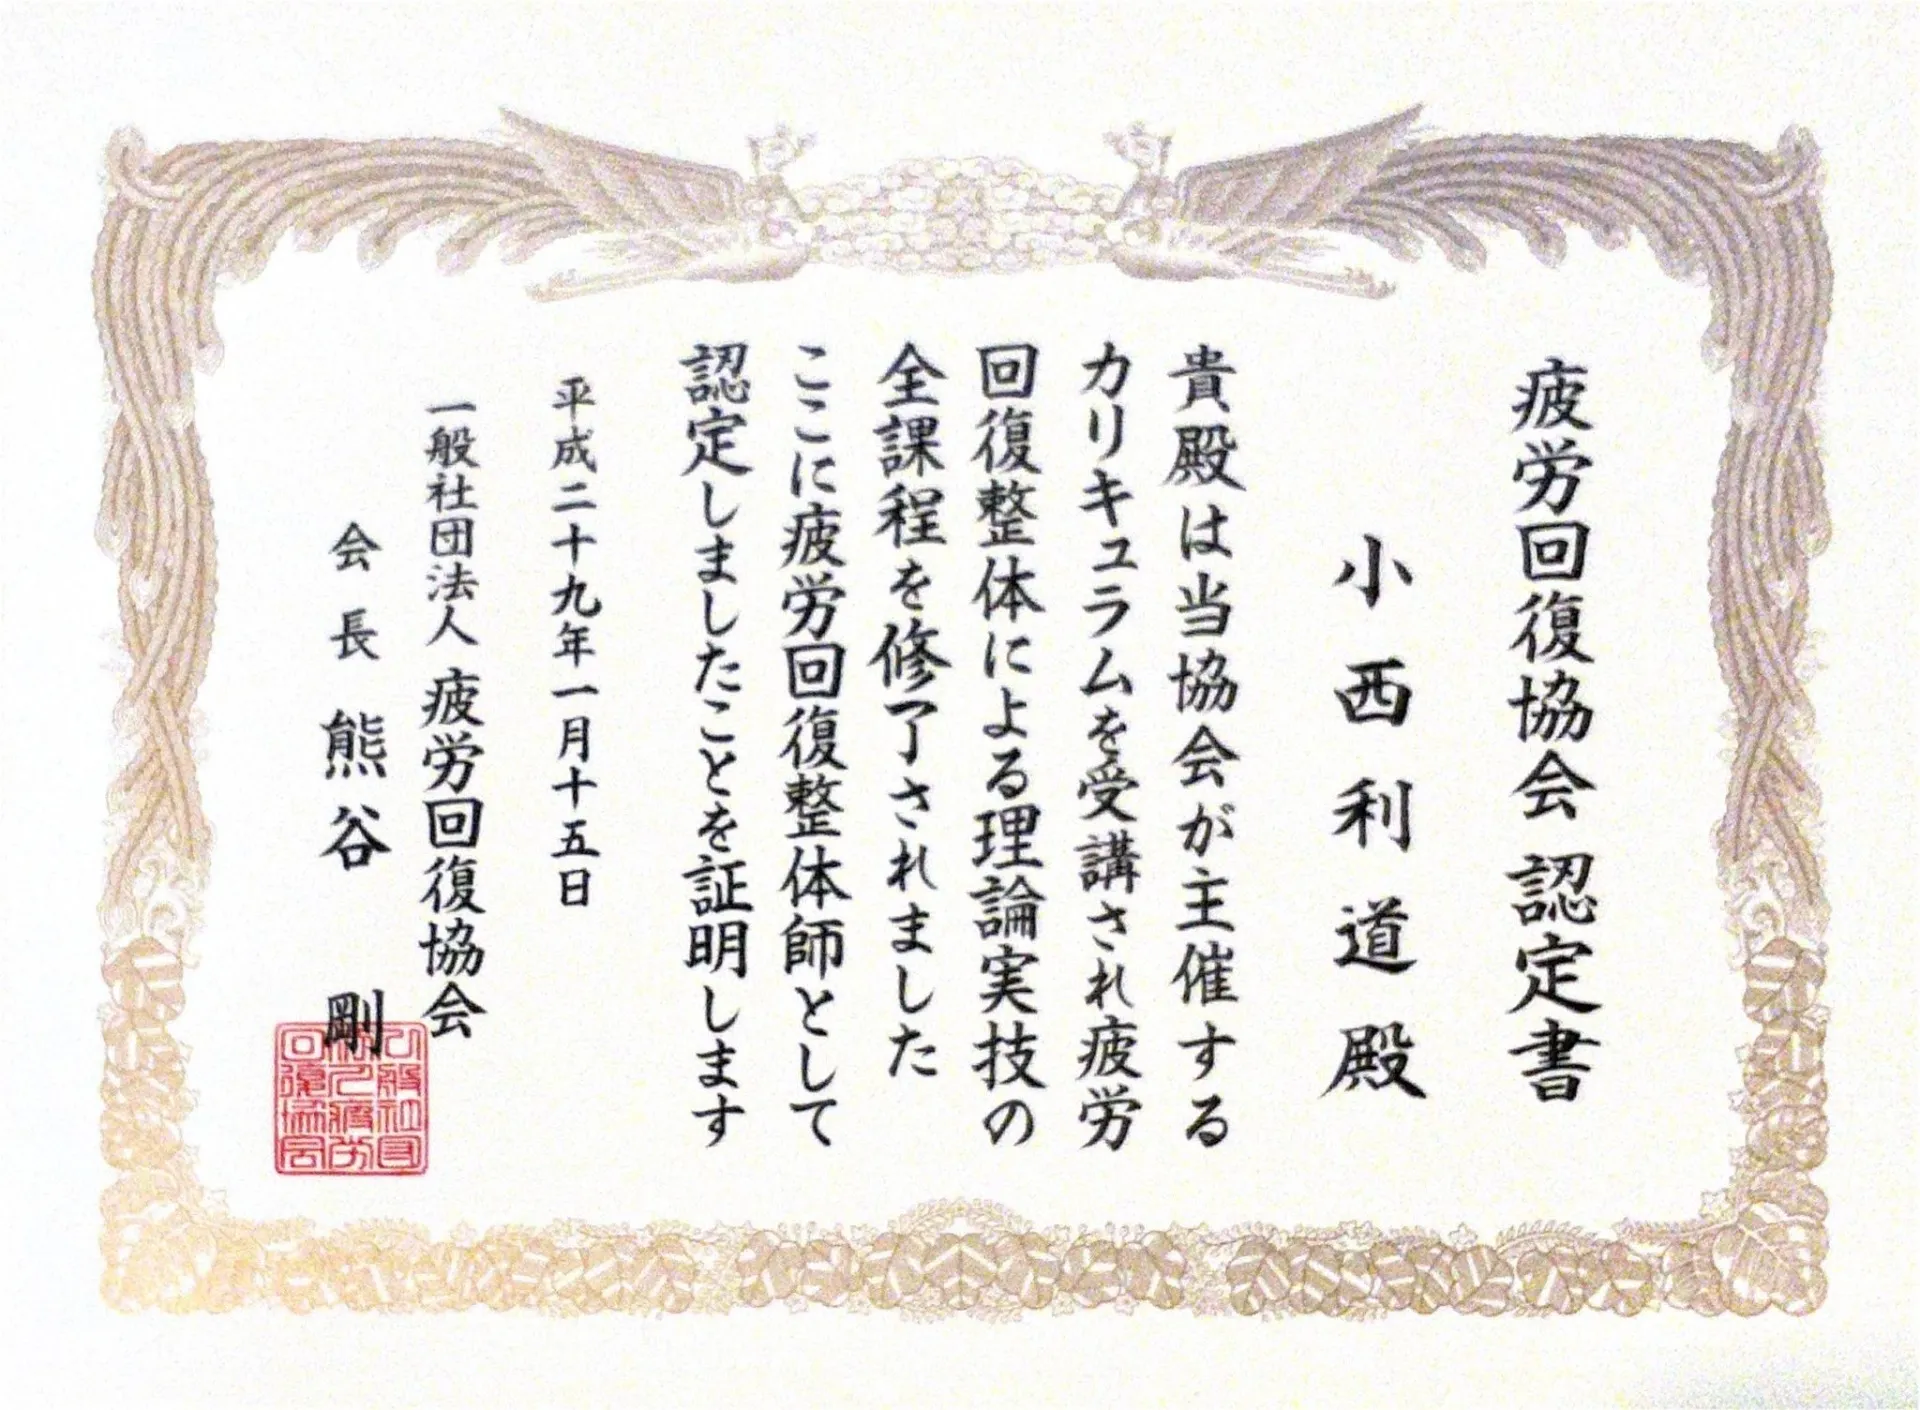 疲労回復協会 認定書
小西利道殿
貴殿は当協会が主催する
カリキュラムを受講され疲労
回復整体による理論実技の
全課程を修了されました
ここに疲労回復整体師として
認定しましたことを証明します
平成二十九年一月十五日
一般社団法人 疲労回復協会
会長 熊谷 剛